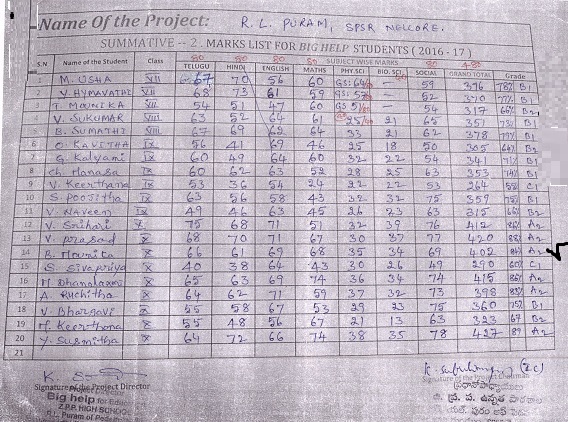 Name Of the Project: R. L. PURAM, SPSR NELLORE.
SUMMATIVE -- 2. MARKS LIST FOR BIG HELP STUDENTS ( 2016 - 17 )
80 80 80 80 80 80 480
SUBJECT WISE MARKS
S.N Name of the Student Class TELUGU HINDI ENGLISH MATHS PHY.SCI BIO. SCI SOCIAL GRAND TOTAL Grade
1 M. USHA VII 67 70 56 60 GS: 64 — 59 376 78% B1
2 V. HYMAVATHI VII 68 73 61 59 GS: 57 — 52 370 77% B1
3 T. MOUNIKA VII 54 51 47 60 GS 51 — 54 317 66% B2
4 V. SUKUMAR VIII 63 52 64 61 25 21 65 351 73% B1
5 B. SUMATHI VIII 67 69 62 64 33 21 62 378 79% B1
6 O. KAVITHA IX 56 41 69 46 25 18 50 305 64% B2
7 G. Kalyani IX 60 49 64 60 32 22 54 341 71% B1
8 Ch. Manasa IX 60 62 63 52 28 25 63 353 74% B1
9 V. Keerthana IX 53 36 54 24 22 22 53 264 55% C1
10 S. Poojitha IX 63 56 58 43 32 32 75 359 75% B1
11 V. NAVeen IX 49 46 63 45 26 23 63 315 66% B2
12 V. Srihari X 75 68 71 51 32 39 76 412 86% A2
13 V. prasad X 68 70 71 67 30 37 77 420 88% A2
14 B. Mounica X 66 61 69 68 35 34 69 402 84% A2
15 S. Sivapriya X 40 38 64 43 30 26 49 290 60% C1
16 M. Dhanalaxmi X 65 63 69 74 36 34 74 415 86% A2
17 A. Ruchitha X 64 62 71 59 37 32 73 398 83% A2
18 V. Bhargavi X 55 58 67 53 29 23 75 360 75% B1
19 M. Keerthana X 55 48 56 67 21 13 63 323 67 B2
20 Y. Susmitha X 64 72 66 74 38 35 78 427 89 A2
21
Signature of the Project Director
Signature of the
Big help for
Z.P.P. HIGH SCHOOL
Puram of
ప్రధానోపాధ్యాయులు
ఉన్నత